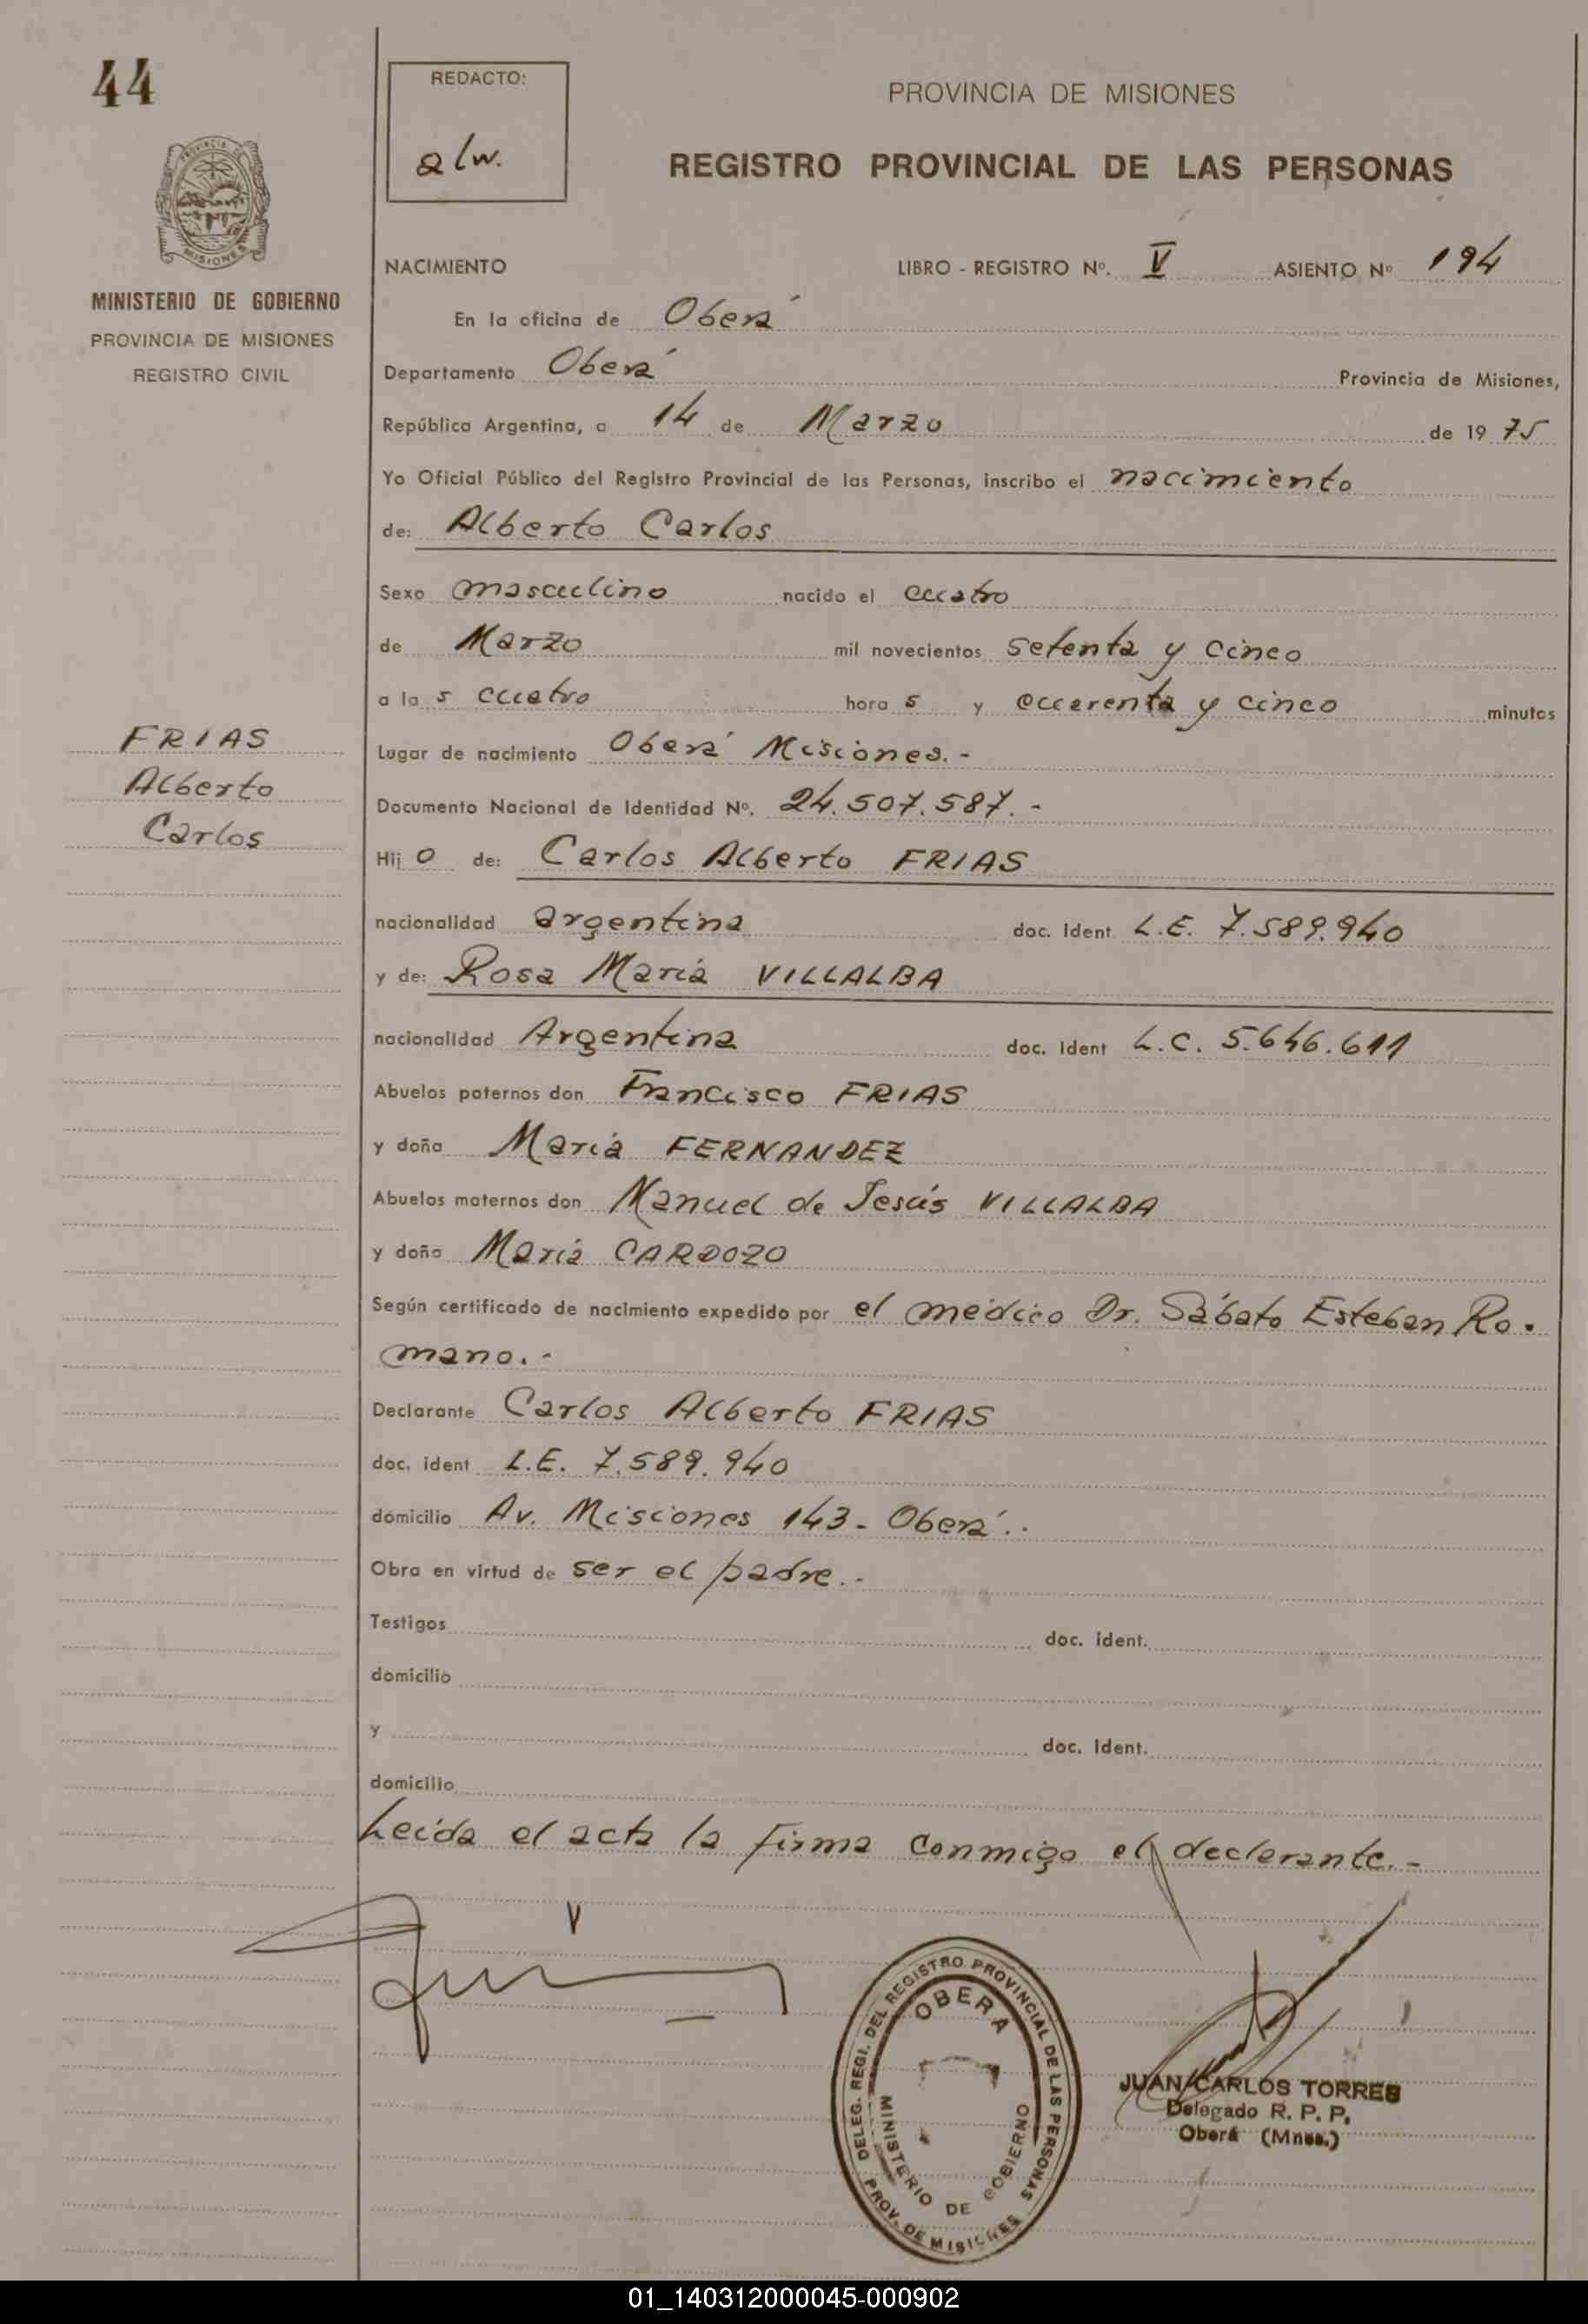 44
REDACTO:
alw.
PROVINCIA DE MISIONES
REGISTRO PROVINCIAL DE LAS PERSONAS
PROVINCIA DE
MISIONES
MINISTERIO DE GOBIERNO
PROVINCIA DE MISIONES
REGISTRO CIVIL
NACIMIENTO LIBRO - REGISTRO Nº. V ASIENTO Nº 194
En la oficina de Oberá
Departamento Oberá Provincia de Misiones,
República Argentina, a 14 de Marzo de 19 75
Yo Oficial Público del Registro Provincial de las Personas, inscribo el nacimiento
de: Alberto Carlos
Sexo masculino nacido el cuatro
de Marzo mil novecientos setenta y cinco
a la s cuatro hora s y cuarenta y cinco minutos
Lugar de nacimiento Oberá Misiones.-
Documento Nacional de Identidad Nº. 24.507.587.-
Hij o de: Carlos Alberto FRIAS
nacionalidad argentina doc. Ident L.E. 7.589.940
y de: Rosa María VILLALBA
nacionalidad Argentina doc. Ident L.C. 5.646.611
Abuelos paternos don Francisco FRIAS
y doña María FERNANDEZ
Abuelos maternos don Manuel de Jesús VILLALBA
y doña María CARDOZO
Según certificado de nacimiento expedido por el médico Dr. Sábato Esteban Ro-
mano.-
Declarante Carlos Alberto FRIAS
doc. ident L.E. 7.589.940
domicilio Av. Misiones 143- Oberá.-
Obra en virtud de ser el padre.-
Testigos doc. ident.
domicilio
y doc. Ident.
domicilio
Leída el acta la firma conmigo el declarante.-
FRIAS
Alberto
Carlos
DELEG. REGI. DEL REGISTRO PROVINCIAL DE LAS PERSONAS
OBERA
MINISTERIO DE GOBIERNO
PROV. DE MISIONES
JUAN CARLOS TORRES
Delegado R. P. P.
Oberá (Mnes.)
01_140312000045-000902